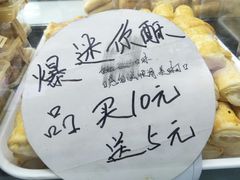 爆迷你酥
品买10元
送5元